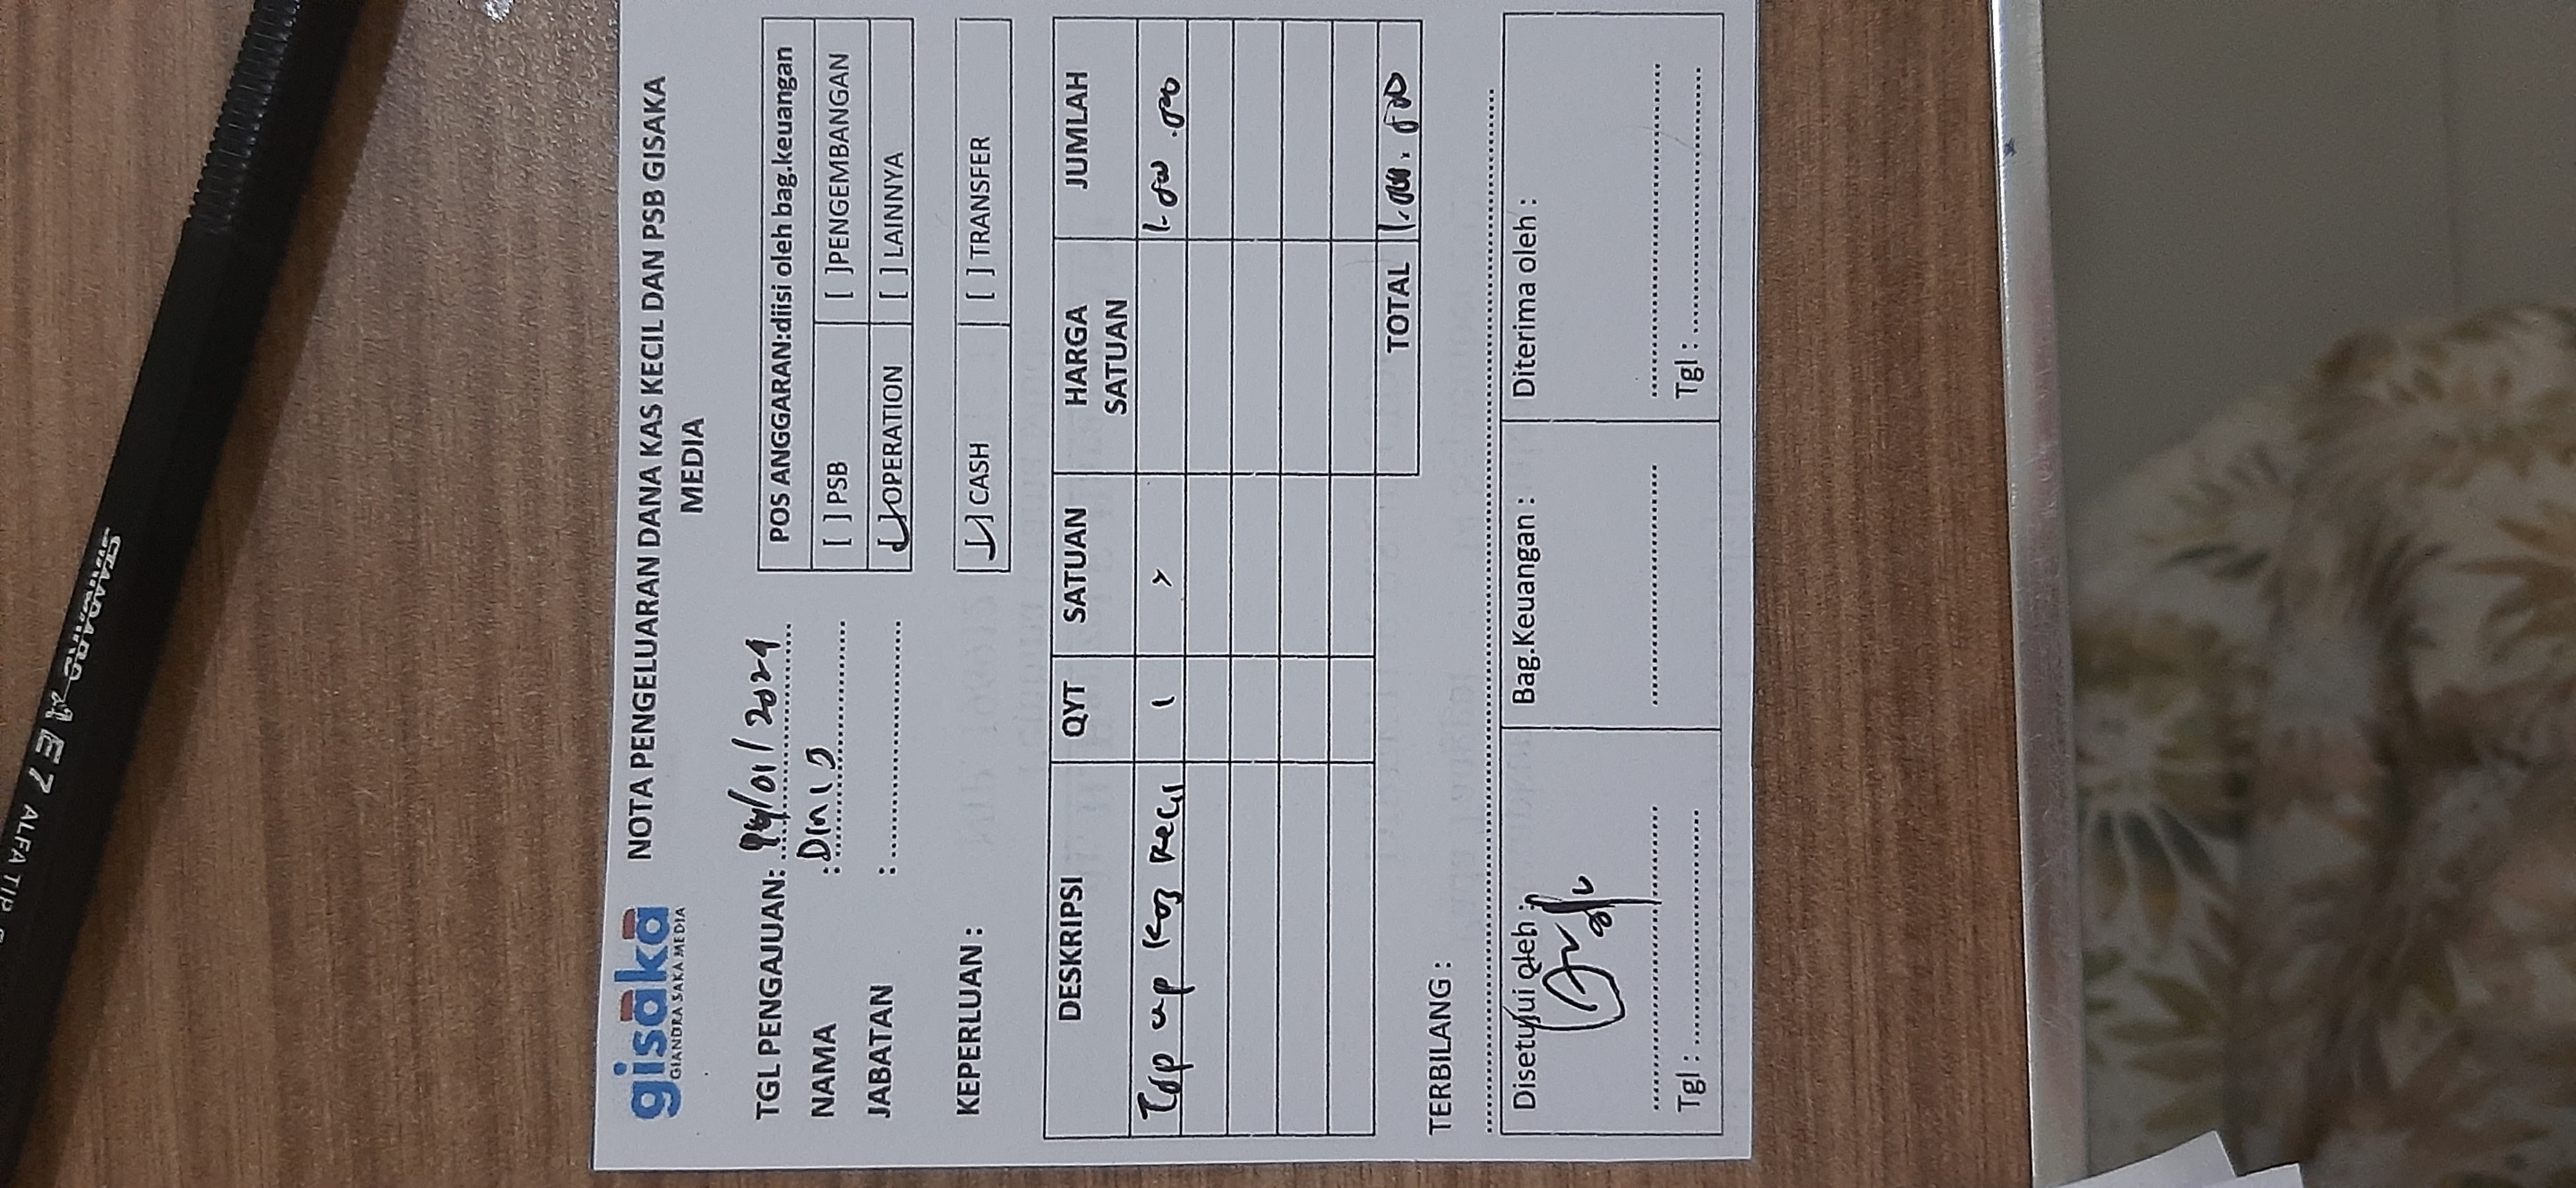 STANDARD AE7 ALFA TIP
gisaka
GIANDRA SAKA MEDIA
NOTA PENGELUARAN DANA KAS KECIL DAN PSB GISAKA
MEDIA
TGL PENGAJUAN: /01/2024
NAMA :
JABATAN :
POS ANGGARAN:diisi oleh bag.keuangan
[ ] PSB [ ]PENGEMBANGAN
[ ]OPERATION [ ] LAINNYA
KEPERLUAN :
[ ] CASH [ ] TRANSFER
DESKRIPSI QYT SATUAN HARGA SATUAN JUMLAH
Top up Kas Kecil 1 1.000.000
TOTAL 1.000.000
TERBILANG :
Disetujui oleh : Bag.Keuangan : Diterima oleh :
Tgl : Tgl :